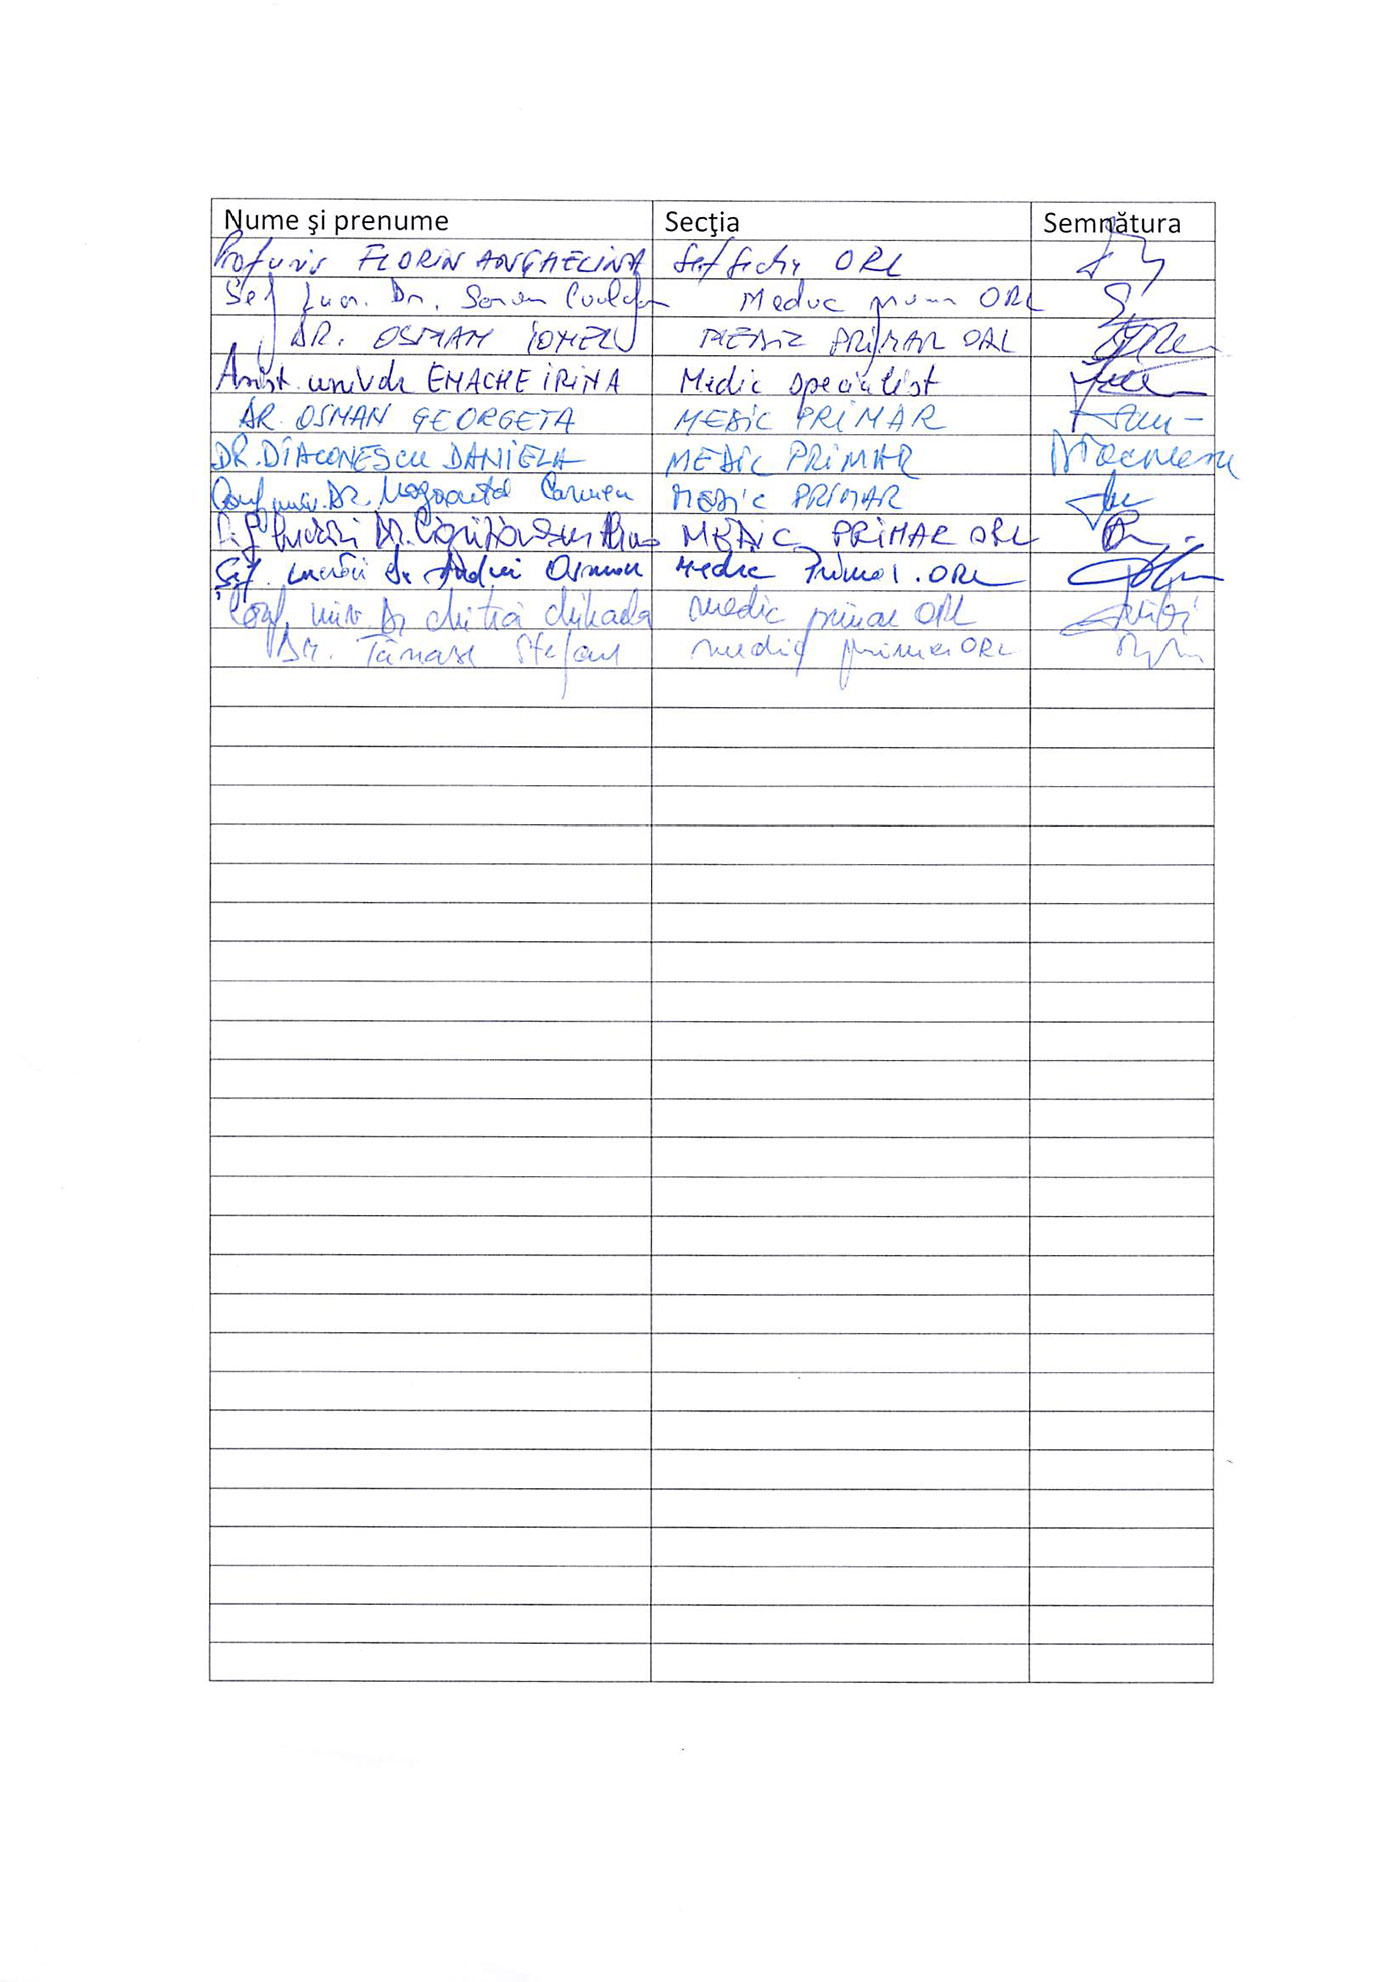 Nume şi prenume Secţia Semnătura
FLORIN ANGHELINA Sef Sectie ORL
Sef Lucr. Dr. Medic primar ORL
DR. OSMAN IONEL MEDIC PRIMAR ORL
Asist. univ dr ENACHE IRINA Medic specialist
DR. OSMAN GEORGETA MEDIC PRIMAR
DR. DIACONESCU DANIELA MEDIC PRIMAR Diaconescu
Conf univ. DR. Mogoanta Carmen MEDIC PRIMAR
Sef lucrări Dr. MEDIC PRIMAR ORL
Şef. lucrări dr Andrei Osman Medic Primar. ORL
Conf. univ. Dr chitică mihaela medic primar ORL
Dr. Tănase Stefan medic primar ORL